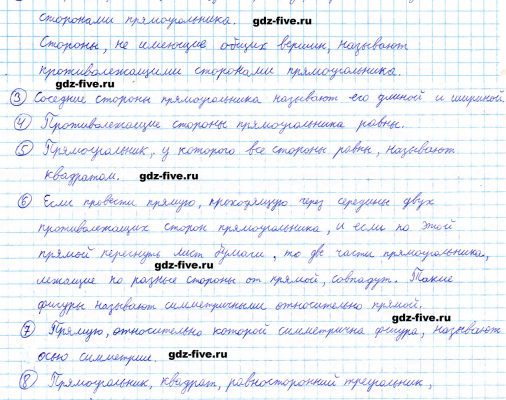 сторонами прямоугольника.
gdz-five.ru
Стороны, не имеющие общих вершин, называют
противолежащими сторонами прямоугольника.
gdz-five.ru
③ Соседние стороны прямоугольника называют его длиной и шириной.
gdz-five.ru
④ Противолежащие стороны прямоугольника равны.
⑤ Прямоугольник, у которого все стороны равны, называют
квадратом. gdz-five.ru
⑥ Если провести прямую, проходящую через середины двух
gdz-five.ru
противолежащих сторон прямоугольника, и если по этой
прямой перегнуть лист бумаги, то две части прямоугольника,
gdz-five.ru
лежащие по разные стороны от прямой, совпадут. Такие
фигуры называют симметричными относительно прямой.
gdz-five.ru
⑦ Прямую, относительно которой симметрична фигура, называют
осью симметрии. gdz-five.ru
⑧ Прямоугольник, квадрат, равносторонний треугольник,